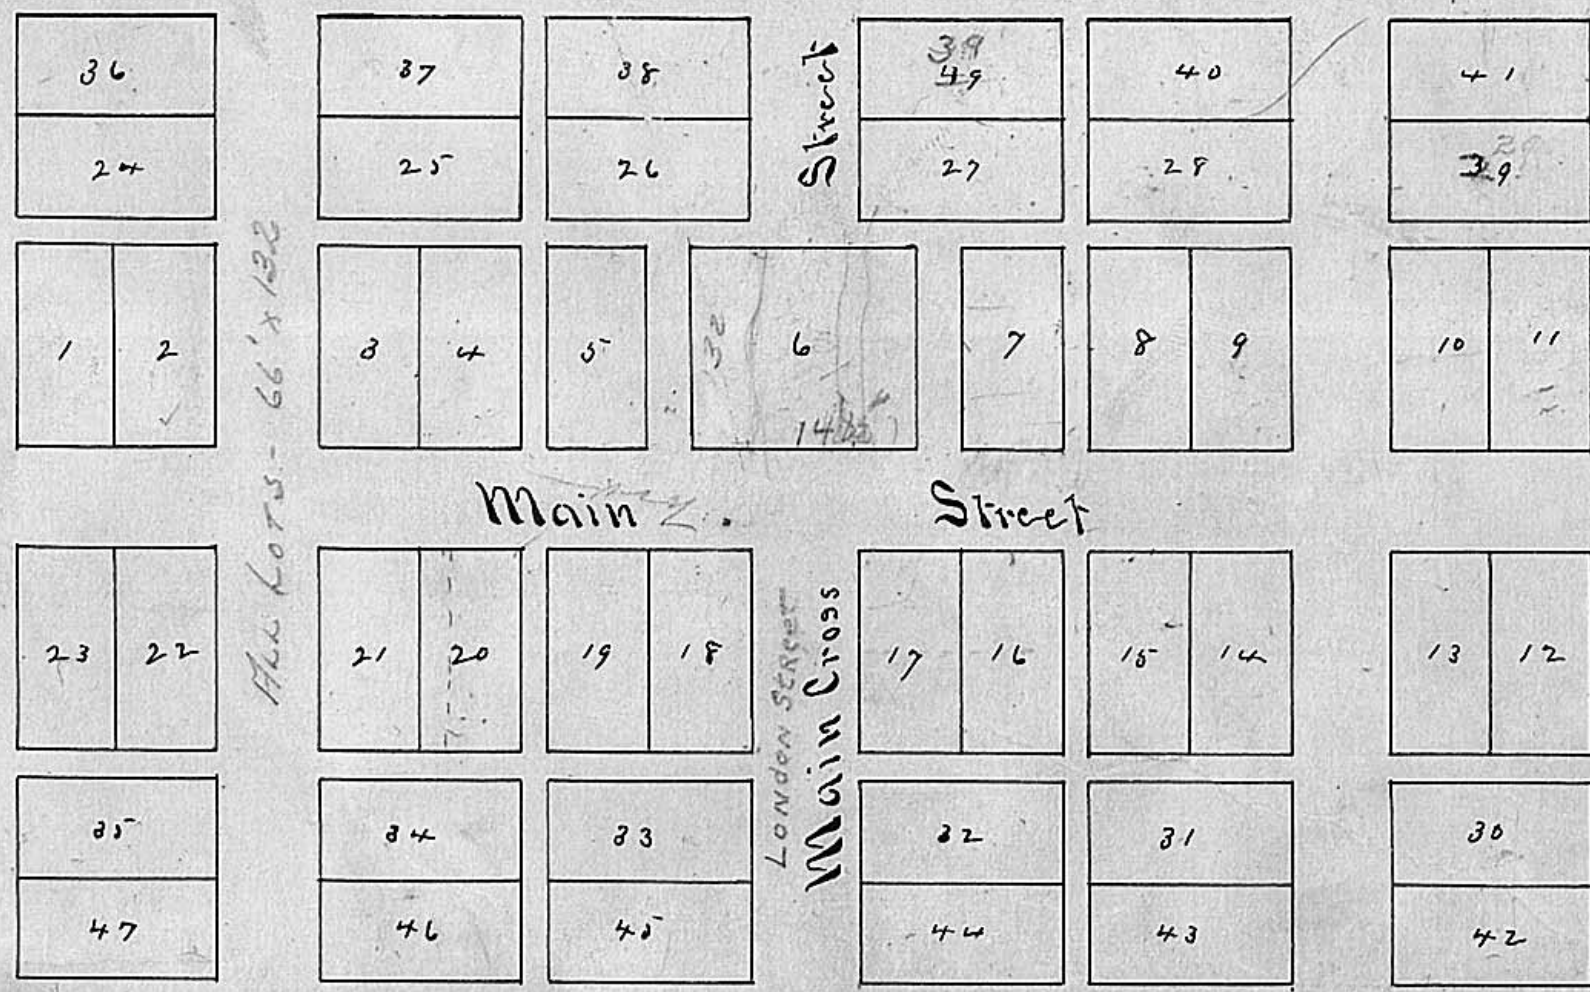 36 37 38 Street 39 49 40 41
24 25 26 27 28 29 39
1 2 ALL LOTS - 66' x 132 3 4 5 132 6 7 8 9 10 11
Main Street
23 22 21 20 19 18 London Street Main Cross 17 16 15 14 13 12
35 34 33 32 31 30
47 46 45 44 43 42